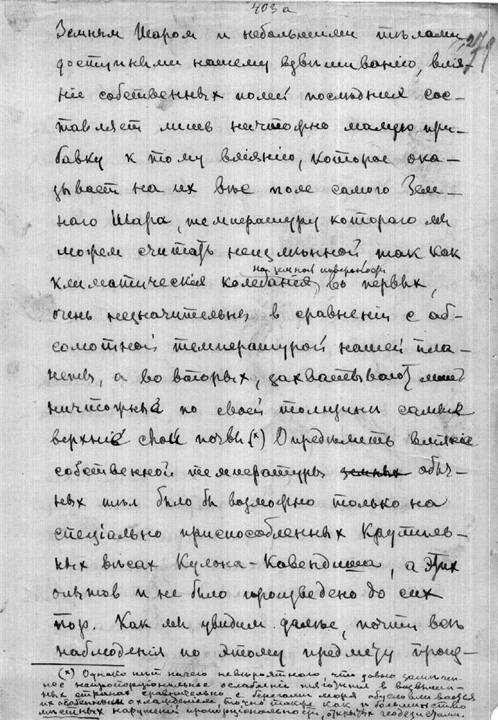 403 а
279
Земным Шаром и небольшими тѣлами,
доступными нашему взвѣшиванію, влія-
ніе собственныхъ полей послѣднихъ сос-
тавляет лишь ничтожно малую при-
бавку к тому вліянію, которое ока-
зывает на их вѣс поле самого Зем-
ного Шара, температуру которого мы
можем считать неизмѣнной, так как
на земной поверхности
климатическія колебанія, во первых,
очень незначительны в сравненіи с аб-
солютной температурой нашей пла-
неты, а во вторых, захватывают лишь
ничтожные по своей толщинѣ самые
верхніе слои почвы (*) Опредѣлить вліяніе
собственной температуры земных обыч-
ных тѣл было бы возможно только на
спеціально приспособленных Крутиль-
ных вѣсах Кулона-Кавендиша, а этих
опытов и не было произведено до сих
пор. Как мы увидим далѣе, почти всѣ
наблюденія по этому предмету произ-
(*) Однако нѣт ничего невѣроятного, что давно замѣчен-
ное непропорціональное ослабленіе тяготѣнія в возвышен-
ных странах сравнительно с берегами моря обусловливается
их особенным охлажденіем, точно также как и большинство
мѣстных нарушеній пропорціональности, открытых геодезистами.